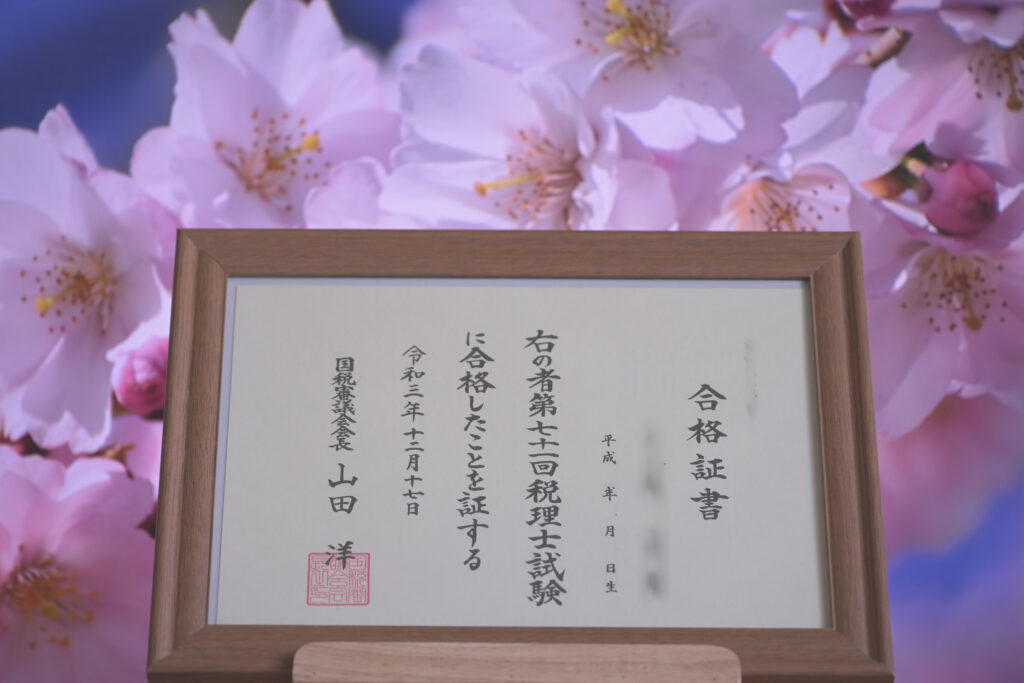 合格証書
平成 年 月 日生
右の者第七十一回税理士試験
に合格したことを証する
令和三年十二月十七日
国税審議会会長 山田 洋